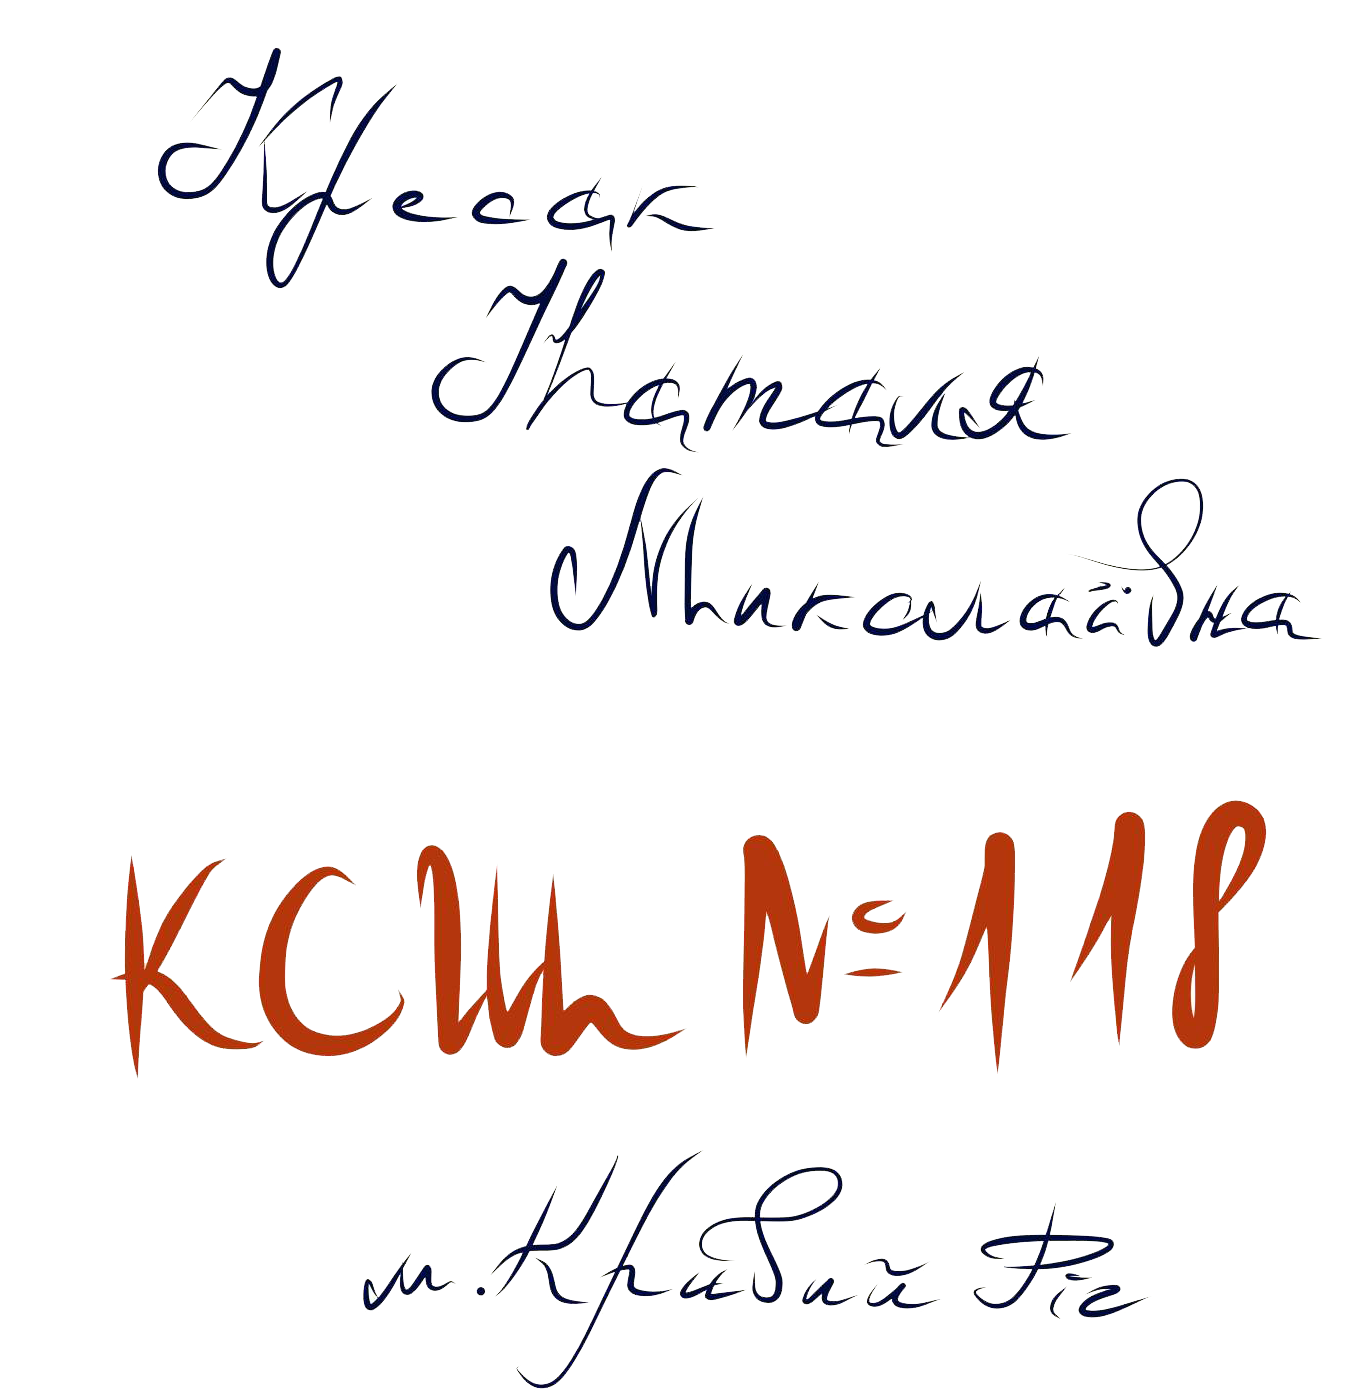 Кресак
Наталя
Миколаївна
КСШ №118
м. Кривий Ріг